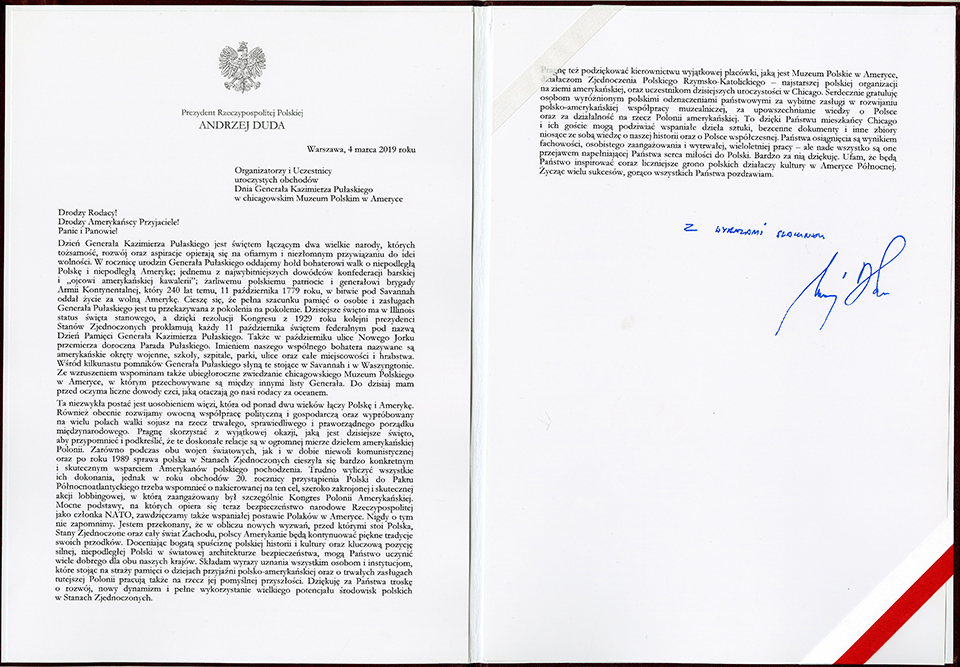 Prezydent Rzeczypospolitej Polskiej
ANDRZEJ DUDA
Warszawa, 4 marca 2019 roku
Organizatorzy i Uczestnicy
uroczystych obchodów
Dnia Generała Kazimierza Pułaskiego
w chicagowskim Muzeum Polskim w Ameryce
Drodzy Rodacy!
Drodzy Amerykańscy Przyjaciele!
Panie i Panowie!
Dzień Generała Kazimierza Pułaskiego jest świętem łączącym dwa wielkie narody, których
tożsamość, rozwój oraz aspiracje opierają się na ofiarnym i niezłomnym przywiązaniu do idei
wolności. W rocznicę urodzin Generała Pułaskiego oddajemy hołd bohaterowi walk o niepodległą
Polskę i niepodległą Amerykę; jednemu z najwybitniejszych dowódców konfederacji barskiej
i „ojcowi amerykańskiej kawalerii”; żarliwemu polskiemu patriocie i generałowi brygady
Armii Kontynentalnej, który 240 lat temu, 11 października 1779 roku, w bitwie pod Savannah
oddał życie za wolną Amerykę. Cieszę się, że pełna szacunku pamięć o osobie i zasługach
Generała Pułaskiego jest tu przekazywana z pokolenia na pokolenie. Dzisiejsze święto ma w Illinois
status święta stanowego, a dzięki rezolucji Kongresu z 1929 roku kolejni prezydenci
Stanów Zjednoczonych proklamują każdy 11 października świętem federalnym pod nazwą
Dzień Pamięci Generała Kazimierza Pułaskiego. Także w październiku ulice Nowego Jorku
przemierza doroczna Parada Pułaskiego. Imieniem naszego wspólnego bohatera nazywane są
amerykańskie okręty wojenne, szkoły, szpitale, parki, ulice oraz całe miejscowości i hrabstwa.
Wśród kilkunastu pomników Generała Pułaskiego słyną te stojące w Savannah i w Waszyngtonie.
Ze wzruszeniem wspominam także ubiegłoroczne zwiedzanie chicagowskiego Muzeum Polskiego
w Ameryce, w którym przechowywane są między innymi listy Generała. Do dzisiaj mam
przed oczyma liczne dowody czci, jaką otaczają go nasi rodacy za oceanem.
Ta niezwykła postać jest uosobieniem więzi, która od ponad dwu wieków łączy Polskę i Amerykę.
Również obecnie rozwijamy owocną współpracę polityczną i gospodarczą oraz wypróbowany
na wielu polach walki sojusz na rzecz trwałego, sprawiedliwego i praworządnego porządku
międzynarodowego. Pragnę skorzystać z wyjątkowej okazji, jaką jest dzisiejsze święto,
aby przypomnieć i podkreślić, że te doskonałe relacje są w ogromnej mierze dziełem amerykańskiej
Polonii. Zarówno podczas obu wojen światowych, jak i w dobie niewoli komunistycznej
oraz po roku 1989 sprawa polska w Stanach Zjednoczonych cieszyła się bardzo konkretnym
i skutecznym wsparciem Amerykanów polskiego pochodzenia. Trudno wyliczyć wszystkie
ich dokonania, jednak w roku obchodów 20. rocznicy przystąpienia Polski do Paktu
Północnoatlantyckiego trzeba wspomnieć o nakierowanej na ten cel, szeroko zakrojonej i skutecznej
akcji lobbingowej, w którą zaangażowany był szczególnie Kongres Polonii Amerykańskiej.
Mocne podstawy, na których opiera się teraz bezpieczeństwo narodowe Rzeczypospolitej
jako członka NATO, zawdzięczamy także wspaniałej postawie Polaków w Ameryce. Nigdy o tym
nie zapomnimy. Jestem przekonany, że w obliczu nowych wyzwań, przed którymi stoi Polska,
Stany Zjednoczone oraz cały świat Zachodu, polscy Amerykanie będą kontynuować piękne tradycje
swoich przodków. Doceniając bogatą spuściznę polskiej historii i kultury oraz kluczową pozycję
silnej, niepodległej Polski w światowej architekturze bezpieczeństwa, mogą Państwo uczynić
wiele dobrego dla obu naszych krajów. Składam wyrazy uznania wszystkim osobom i instytucjom,
które stojąc na straży pamięci o dziejach przyjaźni polsko-amerykańskiej oraz o trwałych zasługach
tutejszej Polonii pracują także na rzecz jej pomyślnej przyszłości. Dziękuję za Państwa troskę
o rozwój, nowy dynamizm i pełne wykorzystanie wielkiego potencjału środowisk polskich
w Stanach Zjednoczonych.
Pragnę też podziękować kierownictwu wyjątkowej placówki, jaką jest Muzeum Polskie w Ameryce,
działaczom Zjednoczenia Polskiego Rzymsko-Katolickiego – najstarszej polskiej organizacji
na ziemi amerykańskiej, oraz uczestnikom dzisiejszych uroczystości w Chicago. Serdecznie gratuluję
osobom wyróżnionym polskimi odznaczeniami państwowymi za wybitne zasługi w rozwijaniu
polsko-amerykańskiej współpracy muzealniczej, za upowszechnianie wiedzy o Polsce
oraz za działalność na rzecz Polonii amerykańskiej. To dzięki Państwu mieszkańcy Chicago
i ich goście mogą podziwiać wspaniałe dzieła sztuki, bezcenne dokumenty i inne zbiory
niosące ze sobą wiedzę o naszej historii oraz o Polsce współczesnej. Państwa osiągnięcia są wynikiem
fachowości, osobistego zaangażowania i wytrwałej, wieloletniej pracy – ale nade wszystko są one
przejawem napełniającej Państwa serca miłości do Polski. Bardzo za nią dziękuję. Ufam, że będą
Państwo inspirować coraz liczniejsze grono polskich działaczy kultury w Ameryce Północnej.
Życząc wielu sukcesów, gorąco wszystkich Państwa pozdrawiam.
Z WYRAZAMI SZACUNKU